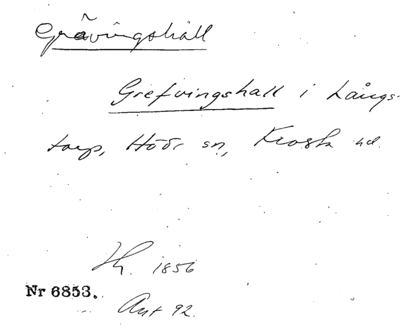 Grävingshall
Grefvingshall i Långs-
torp, Höör sn, Frosta hd.
Lh. 1856
Nr 6853.
Ant 92.